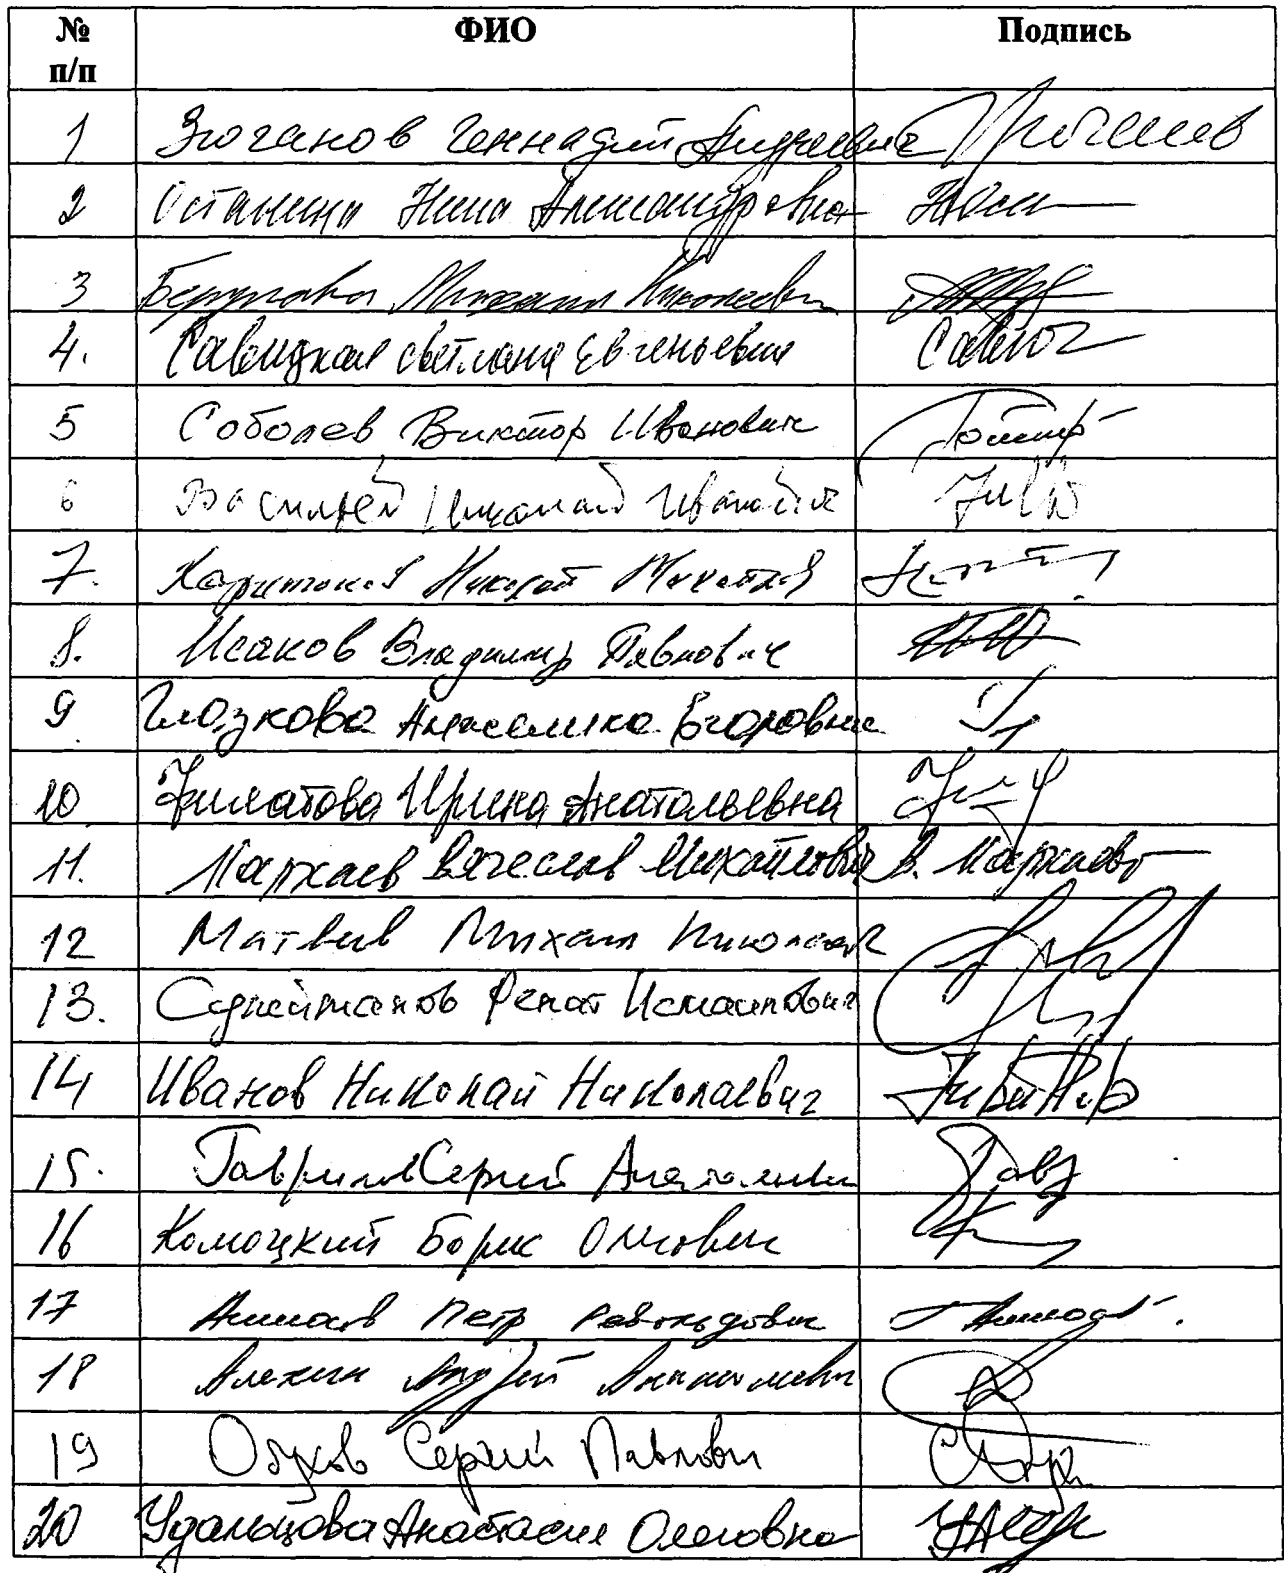 № п/п ФИО Подпись
1 Зюганов Геннадий Андреевич
2 Останина Нина Александровна
3 Берулава Михаил Николаевич
4. Савицкая Светлана Евгеньевна
5 Соболев Виктор Иванович
6 Васильев Николай Иванович
7. Харитонов Николай Михайлов
8. Исаков Владимир Павлович
9 Глазкова Анжелика Егоровна
10 Филатова Ирина Анатольевна
11. Мархаев Вячеслав Михайлович В. Мархаев
12 Матвеев Михаил Николаевич
13. Сулейманов Ренат Исмаилович
14 Иванов Николай Николаевич
15. Гаврилов Сергей Анатольевич
16 Комоцкий Борис Олегович
17 Аммосов Петр Револьдович
18 Алехин Андрей Анатольевич
19 Обухов Сергей Павлович
20 Удальцова Анастасия Олеговна